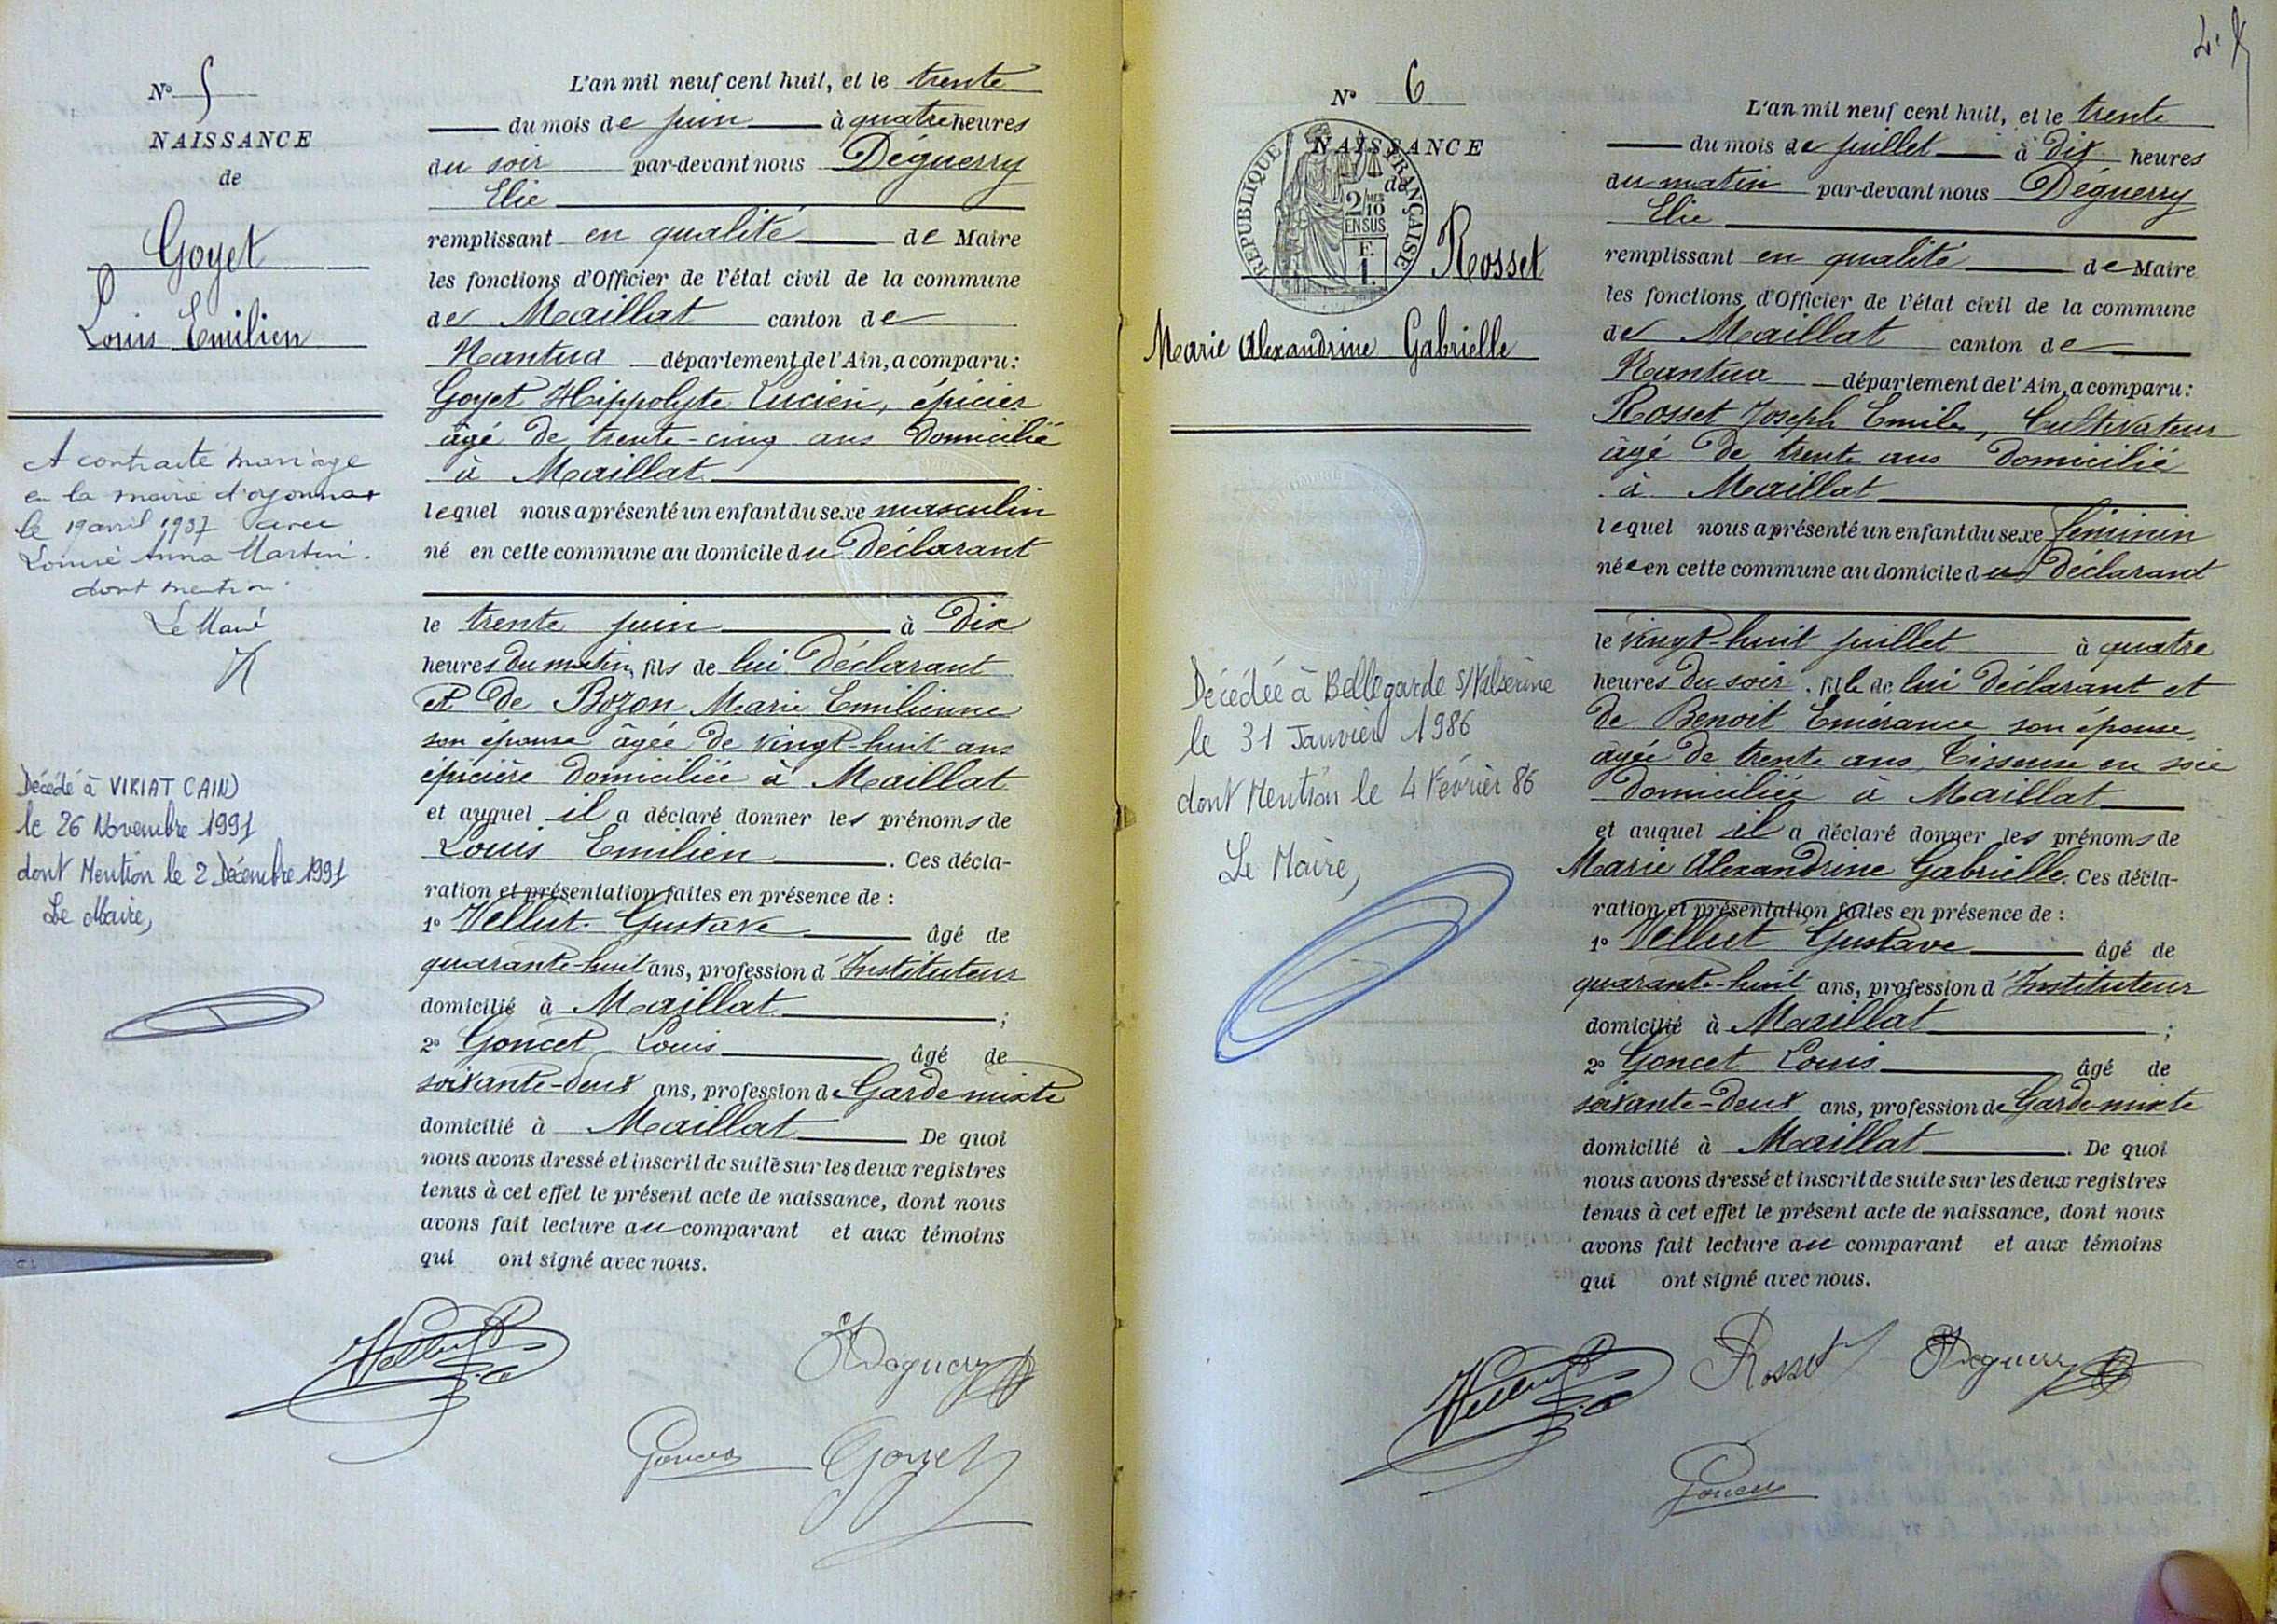 N° 5
NAISSANCE
de
Goyet
Louis Emilien
A contracté mariage
en la mairie d'oyonnax
le 19 avril 1937 avec
Louise Anna Martin.
dont mention.
Le Maire
Décédé à VIRIAT (AIN)
le 26 Novembre 1991
dont Mention le 2 Décembre 1991
Le Maire,
L'an mil neuf cent huit, et le trente
du mois de juin à quatre heures
du soir par-devant nous Déguerry
Elie
remplissant en qualité de Maire
les fonctions d'Officier de l'état civil de la commune
de Maillat canton de
Nantua département de l'Ain, a comparu :
Goyet Hippolyte Lucien, épicier
âgé de trente-cinq ans domicilié
à Maillat
lequel nous a présenté un enfant du sexe masculin
né en cette commune au domicile du Déclarant
le trente juin à Dix
heures du matin, fils de lui Déclarant
et de Bozon Marie Emilienne
son épouse âgée de vingt-huit ans
épicière domiciliée à Maillat
et auquel il a déclaré donner les prénoms de
Louis Emilien. Ces décla-
ration et présentation faites en présence de :
1° Vellut Gustave âgé de
quarante-huit ans, profession d'Instituteur
domicilié à Maillat ;
2° Goncet Louis âgé de
soixante-deux ans, profession de Garde mixte
domicilié à Maillat De quoi
nous avons dressé et inscrit de suite sur les deux registres
tenus à cet effet le présent acte de naissance, dont nous
avons fait lecture au comparant et aux témoins
qui ont signé avec nous.
Vellut
Déguerry
Goncet Goyet
N° 6
NAISSANCE
de
REPUBLIQUE FRANÇAISE
2/10
EN SUS
F.
1.
Rosset
Marie Alexandrine Gabrielle
Décédée à Bellegarde s/Valserine
le 31 Janvier 1986
dont Mention le 4 Février 86
Le Maire,
L'an mil neuf cent huit, et le trente
du mois de juillet à dix heures
du matin par-devant nous Déguerry
Elie
remplissant en qualité de Maire
les fonctions d'Officier de l'état civil de la commune
de Maillat canton de
Nantua département de l'Ain, a comparu :
Rosset Joseph Emile, Cultivateur
âgé de trente ans domicilié
à Maillat
lequel nous a présenté un enfant du sexe féminin
née en cette commune au domicile du Déclarant
le vingt-huit juillet à quatre
heures du soir. fille de lui Déclarant et
de Benoit Emérance son épouse
âgée de trente ans, Tisseuse en soie
Domiciliée à Maillat
et auquel il a déclaré donner les prénoms de
Marie Alexandrine Gabrielle. Ces décla-
ration et présentation faites en présence de :
1° Vellut Gustave âgé de
quarante-huit ans, profession d'Instituteur
domicilié à Maillat ;
2° Goncet Louis âgé de
soixante-deux ans, profession de Garde-mixte
domicilié à Maillat. De quoi
nous avons dressé et inscrit de suite sur les deux registres
tenus à cet effet le présent acte de naissance, dont nous
avons fait lecture au comparant et aux témoins
qui ont signé avec nous.
Vellut Rosset Déguerry
Goncet